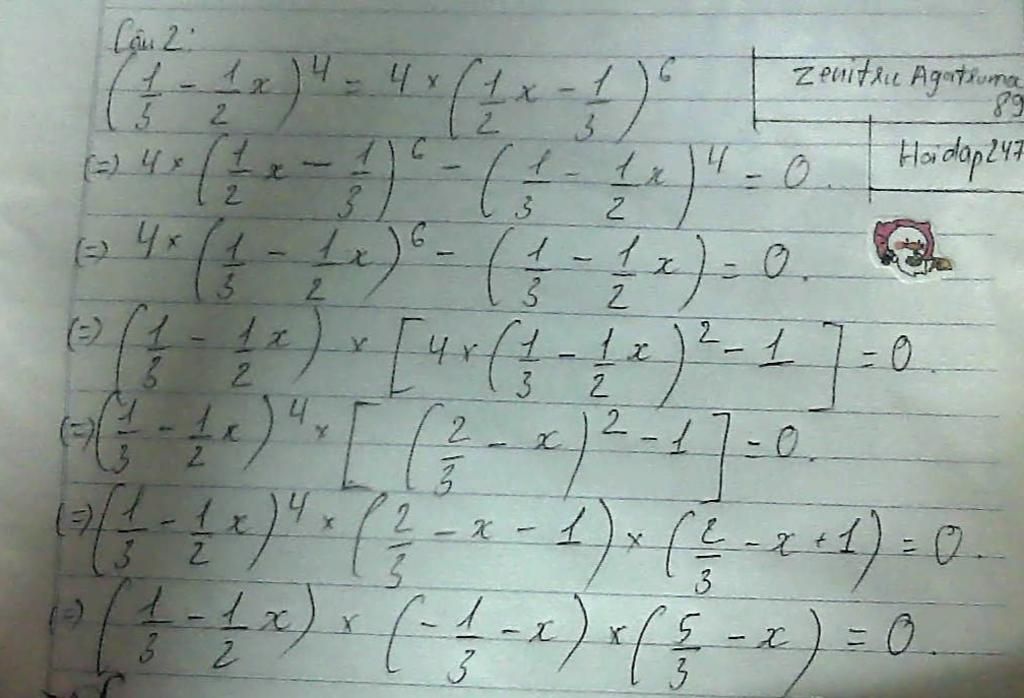 Câu 2:
(1/3 - 1/2 x)^4 = 4 × (1/2 x - 1/3)^6
Zenitsu Agatsuma
89
(=) 4 × (1/2 x - 1/3)^6 - (1/3 - 1/2 x)^4 = 0.
Hoidap247
(=) 4 × (1/3 - 1/2 x)^6 - (1/3 - 1/2 x) = 0.
(=) (1/3 - 1/2 x) × [4 × (1/3 - 1/2 x)^2 - 1] = 0.
(=) (1/3 - 1/2 x)^4 × [(2/3 - x)^2 - 1] = 0.
(=) (1/3 - 1/2 x)^4 × (2/3 - x - 1) × (2/3 - x + 1) = 0.
(=) (1/3 - 1/2 x) × (-1/3 - x) × (5/3 - x) = 0.